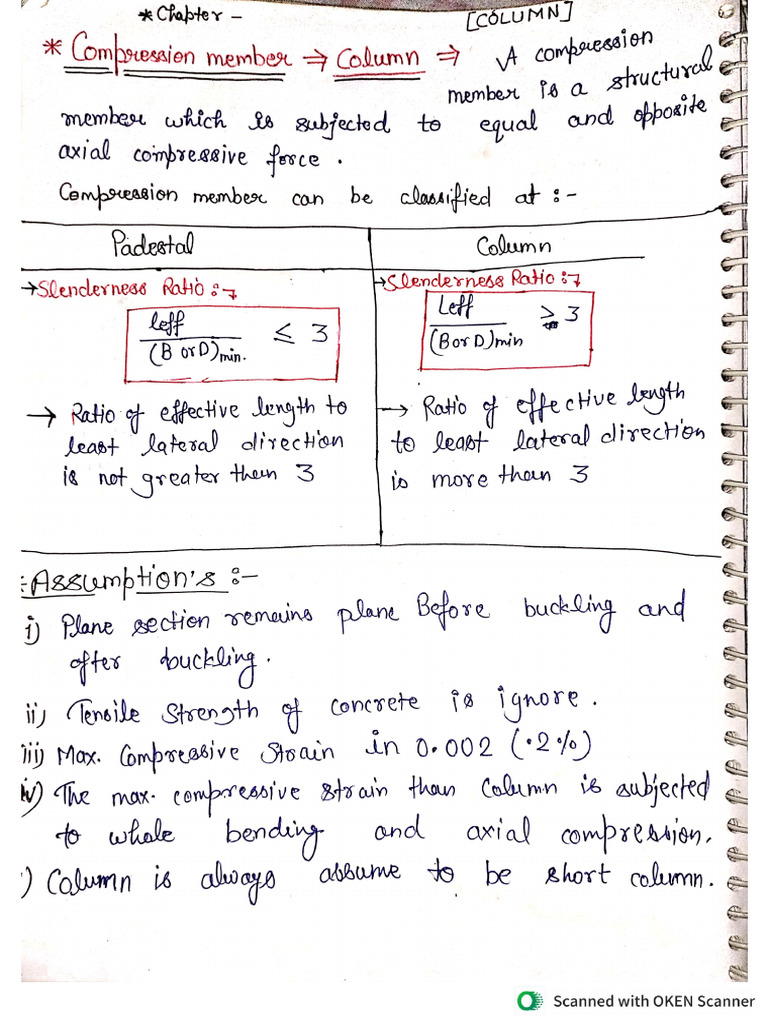 * Chapter - [COLUMN]
* Compression member ⇒ Column ⇒ A compression
member is a structural
member which is subjected to equal and opposite
axial compressive force.
Compression member can be classified at :-
Padestal
→ Slenderness Ratio :→
leff / (B or D)min. ≤ 3
→ Ratio of effective length to
least lateral direction
is not greater then 3
Column
→ Slenderness Ratio :→
Leff / (B or D)min ≥ 3
→ Ratio of effective length
to least lateral direction
is more than 3
* Assumption's :-
i) Plane section remains plane Before buckling and
after buckling.
ii) Tensile Strength of concrete is ignore.
iii) Max. Compressive Strain in 0.002 (.2%)
iv) The max. compressive strain than column is subjected
to whole bending and axial compression.
) Column is always assume to be short column.
Scanned with OKEN Scanner